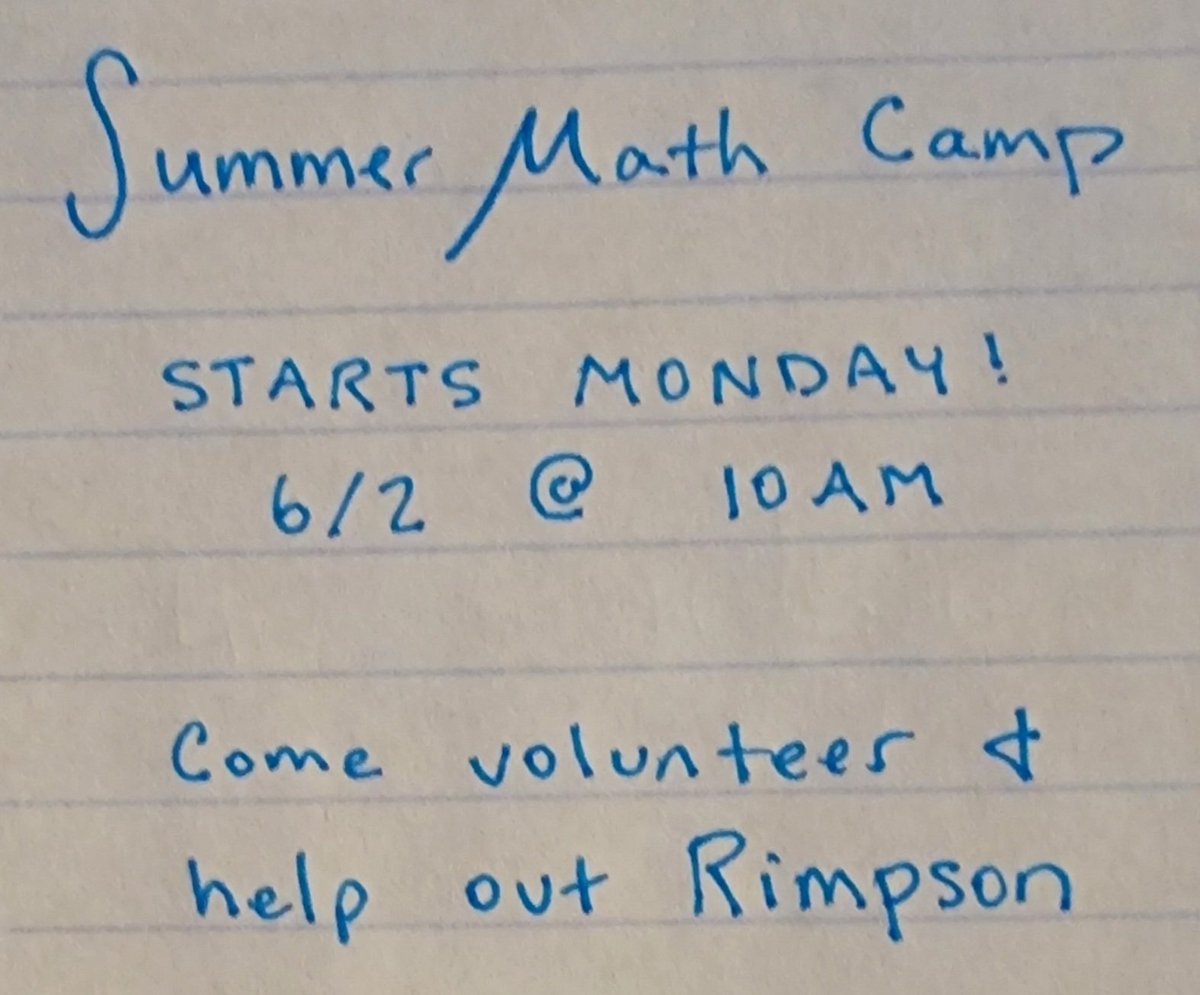 Summer Math Camp
STARTS MONDAY!
6/2 @ 10AM
Come volunteer &
help out Rimpson